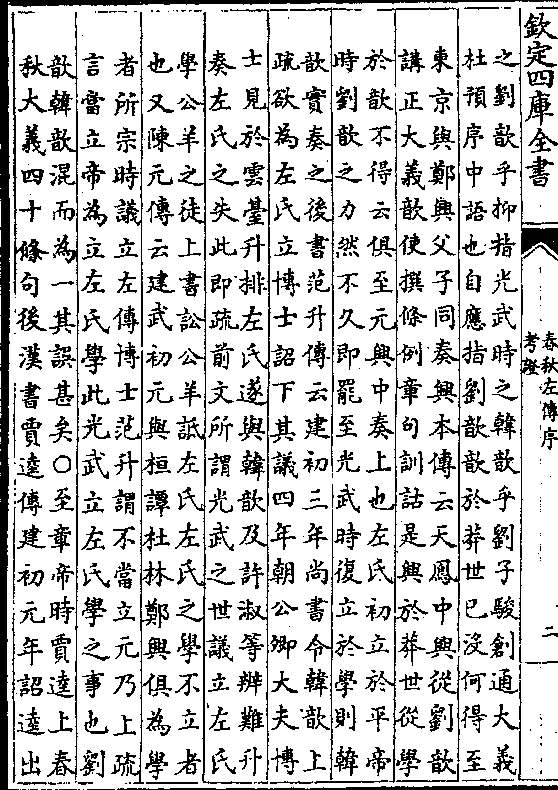 欽定四庫全書
春秋左傳序
考證
二
之劉歆乎抑指光武時之韓歆乎劉子駿創通大義
杜預序中語也自應指劉歆歆於莽世已沒何得至
東京與鄭興父子同奏興本傳云天鳳中興從劉歆
講正大義歆使撰條例章句訓詁是興於莽世從學
於歆不得云俱至元興中奏上也左氏初立於平帝
時劉歆之力然不久即罷至光武時復立於學則韓
歆實奏之後書范升傳云建初三年尚書令韓歆上
疏欲為左氏立博士詔下其議四年朝公卿大夫博
士見於雲臺升排左氏遂與韓歆及許淑等辨難升
奏左氏之失此即疏前文所謂光武之世議立左氏
學公羊之徒上書訟公羊詆左氏左氏之學不立者
也又陳元傳云建武初元與桓譚杜林鄭興俱為學
者所宗時議立左傳博士范升謂不當立元乃上疏
言當立帝為立左氏學此光武立左氏學之事也劉
歆韓歆混而為一其誤甚矣○至章帝時賈逵上春
秋大義四十條句後漢書賈逵傳建初元年詔逵出